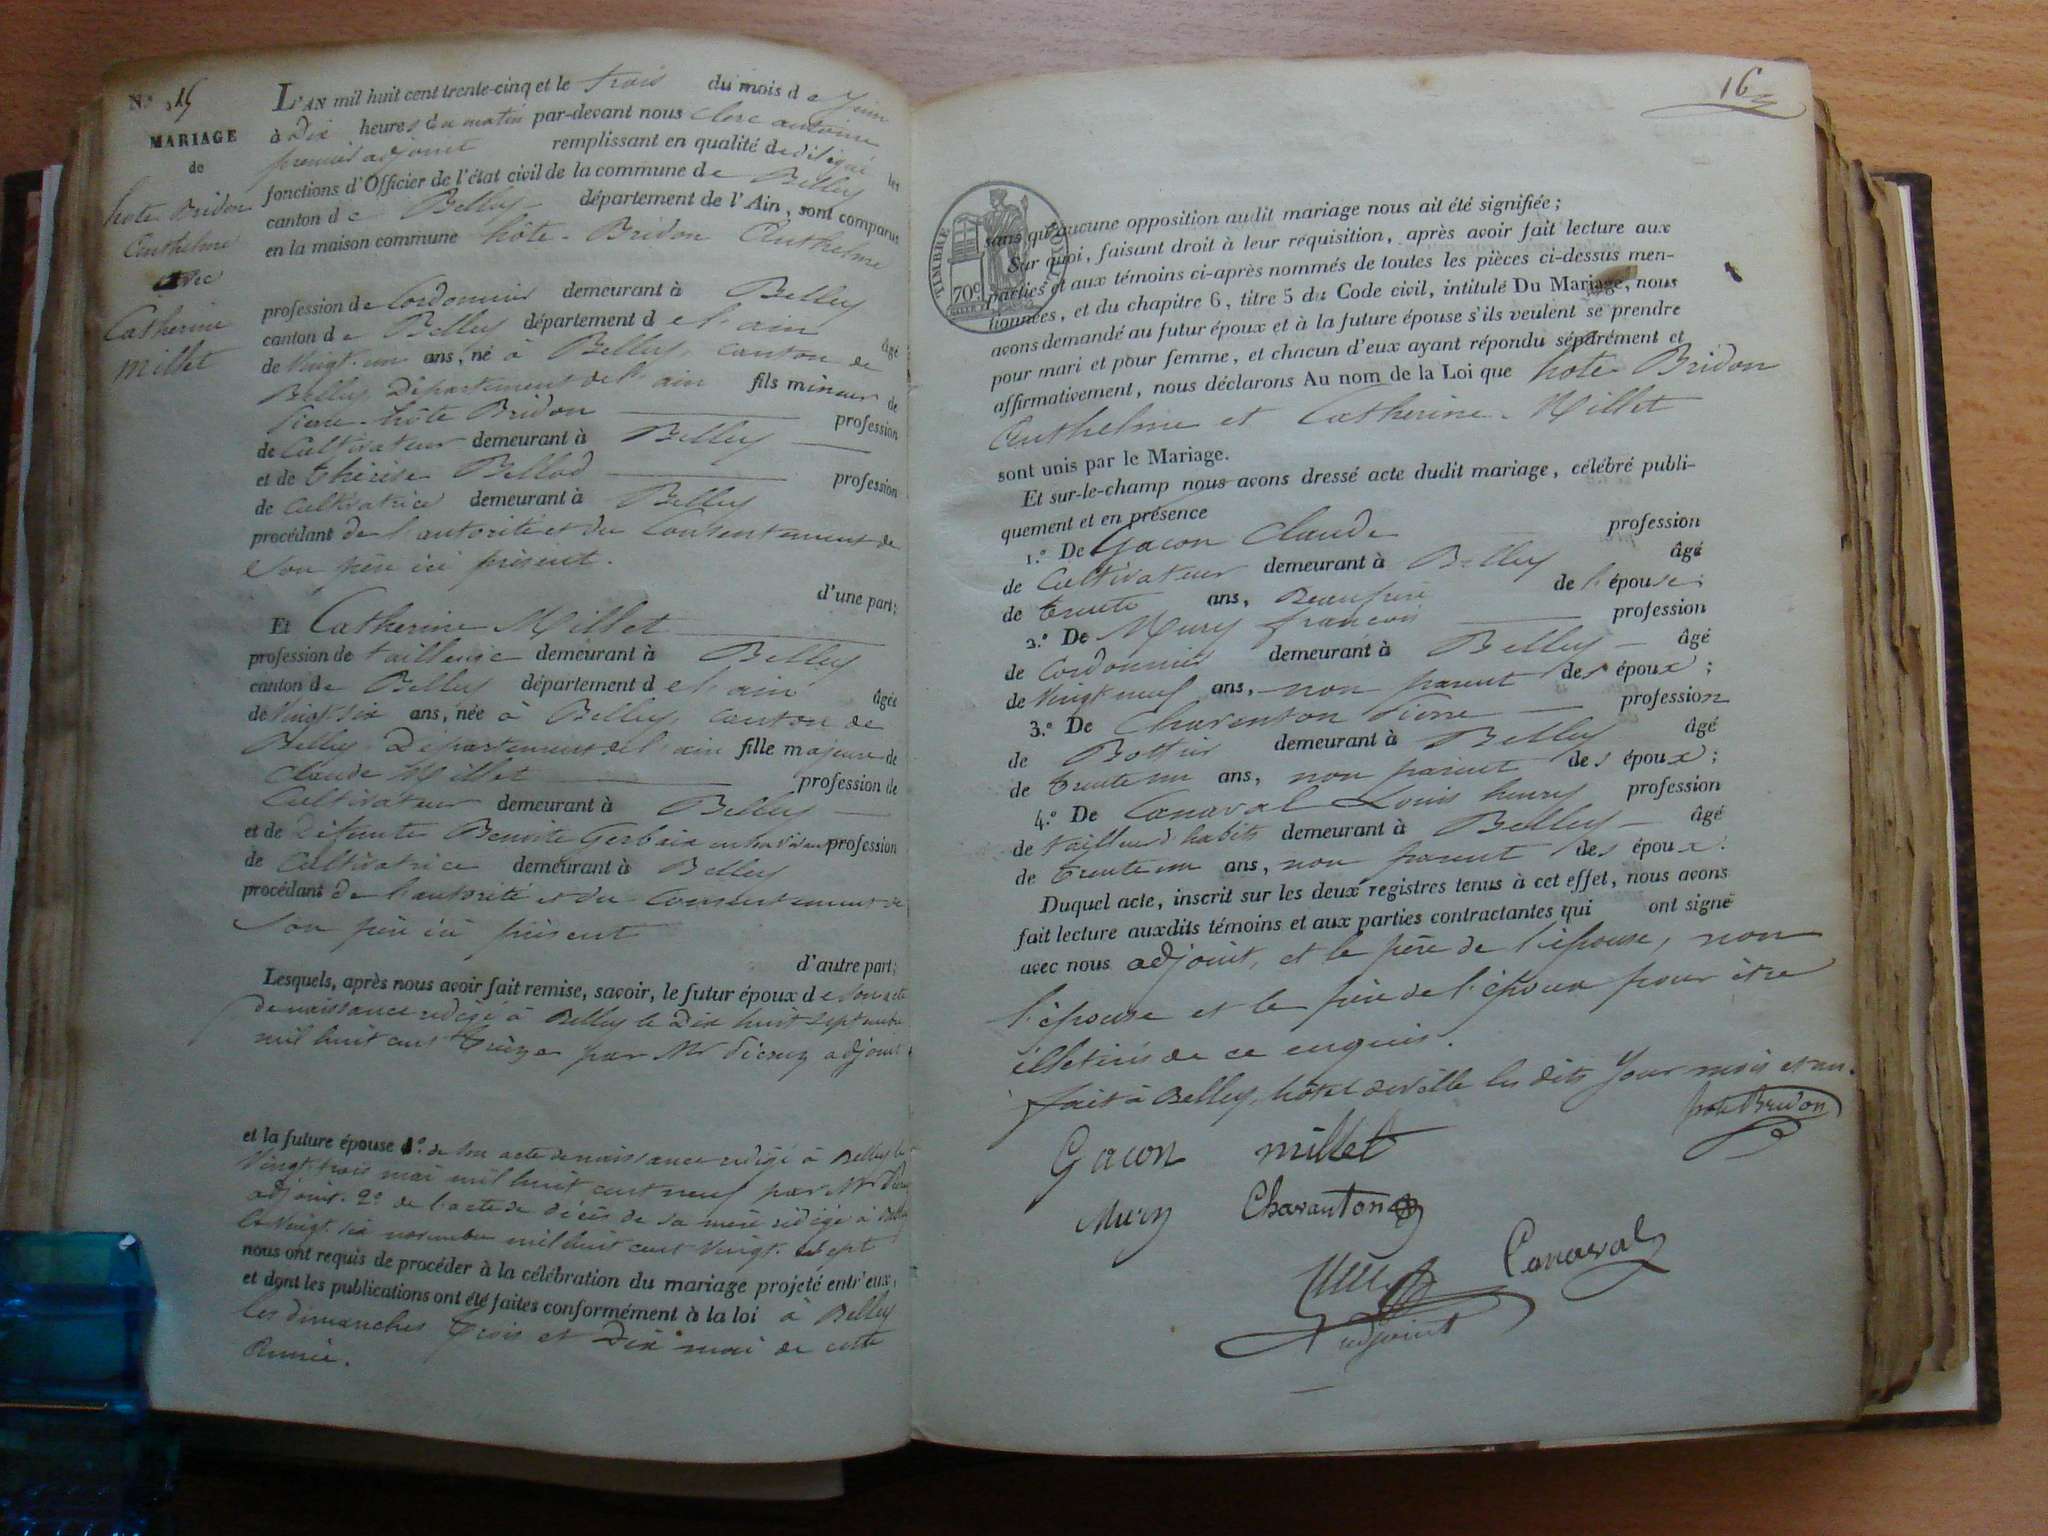 N.° 15
MARIAGE
de
hote Bridon
Anthelme
avec
Catherine
Millet
L'AN mil huit cent trente-cinq et le trois du mois de Juin
à Dix heures du matin par-devant nous Clerc antoine
premier adjoint remplissant en qualité de délégué les
fonctions d'Officier de l'état civil de la commune de Belley
canton de Belley département de l'Ain, sont comparus
en la maison commune hôte-Bridon Anthelme
profession de Cordonnier demeurant à Belley
canton de Belley département de l'ain âgé
de Vingt-un ans, né à Belley, canton de
Belley, Département de l'ain fils mineur de
Pierre hôte Bridon profession
de Cultivateur demeurant à Belley
et de thérèse Bellod profession
de Cultivatrice demeurant à Belley
procédant de l'autorité et du Consentement de
Son père ici présent.
d'une part;
Et Catherine Millet
profession de tailleuse demeurant à Belley
canton de Belley département de l'ain âgée
de Vingt-six ans, née à Belley, canton de
Belley, Département de l'ain fille majeure de
Claude Millet profession de
Cultivateur demeurant à Belley
et de Défunte Benoite Gerbaix profession
de Cultivatrice demeurant à Belley
procédant de l'autorité et du Consentement de
Son père ici présent
d'autre part;
Lesquels, après nous avoir fait remise, savoir, le futur époux de Son acte
de naissance rédigé à Belley le Dix huit Septembre
mil huit cent treize par Mr adjoint
et la future épouse 1°. de Son acte de naissance rédigé à Belley le
Vingt-trois mai mil huit cent neuf par Mr
adjoint. 2° de l'acte de décès de sa mère rédigé à Belley
le Vingt-six novembre mil huit cent Vingt-sept
nous ont requis de procéder à la célébration du mariage projeté entr'eux,
et dont les publications ont été faites conformément à la loi à Belley
les dimanches trois et Dix mai de cette
année.
16
TIMBRE ROYAL
70c
sans qu'aucune opposition audit mariage nous ait été signifiée;
Sur quoi, faisant droit à leur réquisition, après avoir fait lecture aux
parties et aux témoins ci-après nommés de toutes les pièces ci-dessus men-
tionnées, et du chapitre 6, titre 5 du Code civil, intitulé Du Mariage, nous
avons demandé au futur époux et à la future épouse s'ils veulent se prendre
pour mari et pour femme, et chacun d'eux ayant répondu séparément et
affirmativement, nous déclarons Au nom de la Loi que hote Bridon
Anthelme et Catherine Millet
sont unis par le Mariage.
Et sur-le-champ nous avons dressé acte dudit mariage, célébré publi-
quement et en présence
1.° De Gacon Claude profession
de Cultivateur demeurant à Belley âgé
de trente ans, Beaufrère de l'épouse;
2.° De Mury françois profession
de Cordonnier demeurant à Belley âgé
de Vingt neuf ans, non parent des époux;
3.° De Charenton Pierre profession
de Bottier demeurant à Belley âgé
de trente un ans, non parent des époux;
4.° De Canaval Louis henry profession
de tailleur d'habits demeurant à Belley âgé
de trente un ans, non parent des époux.
Duquel acte, inscrit sur les deux registres tenus à cet effet, nous avons
fait lecture auxdits témoins et aux parties contractantes qui ont signé
avec nous adjoint, et le père de l'épouse, non
l'épouse et le père de l'époux pour être
illetirés de ce enquis.
fait à Belley, hôtel deville les dits Jour mois et an.
hote Bridon
Gacon millet
Mury Charanton
Canaval
adjoint